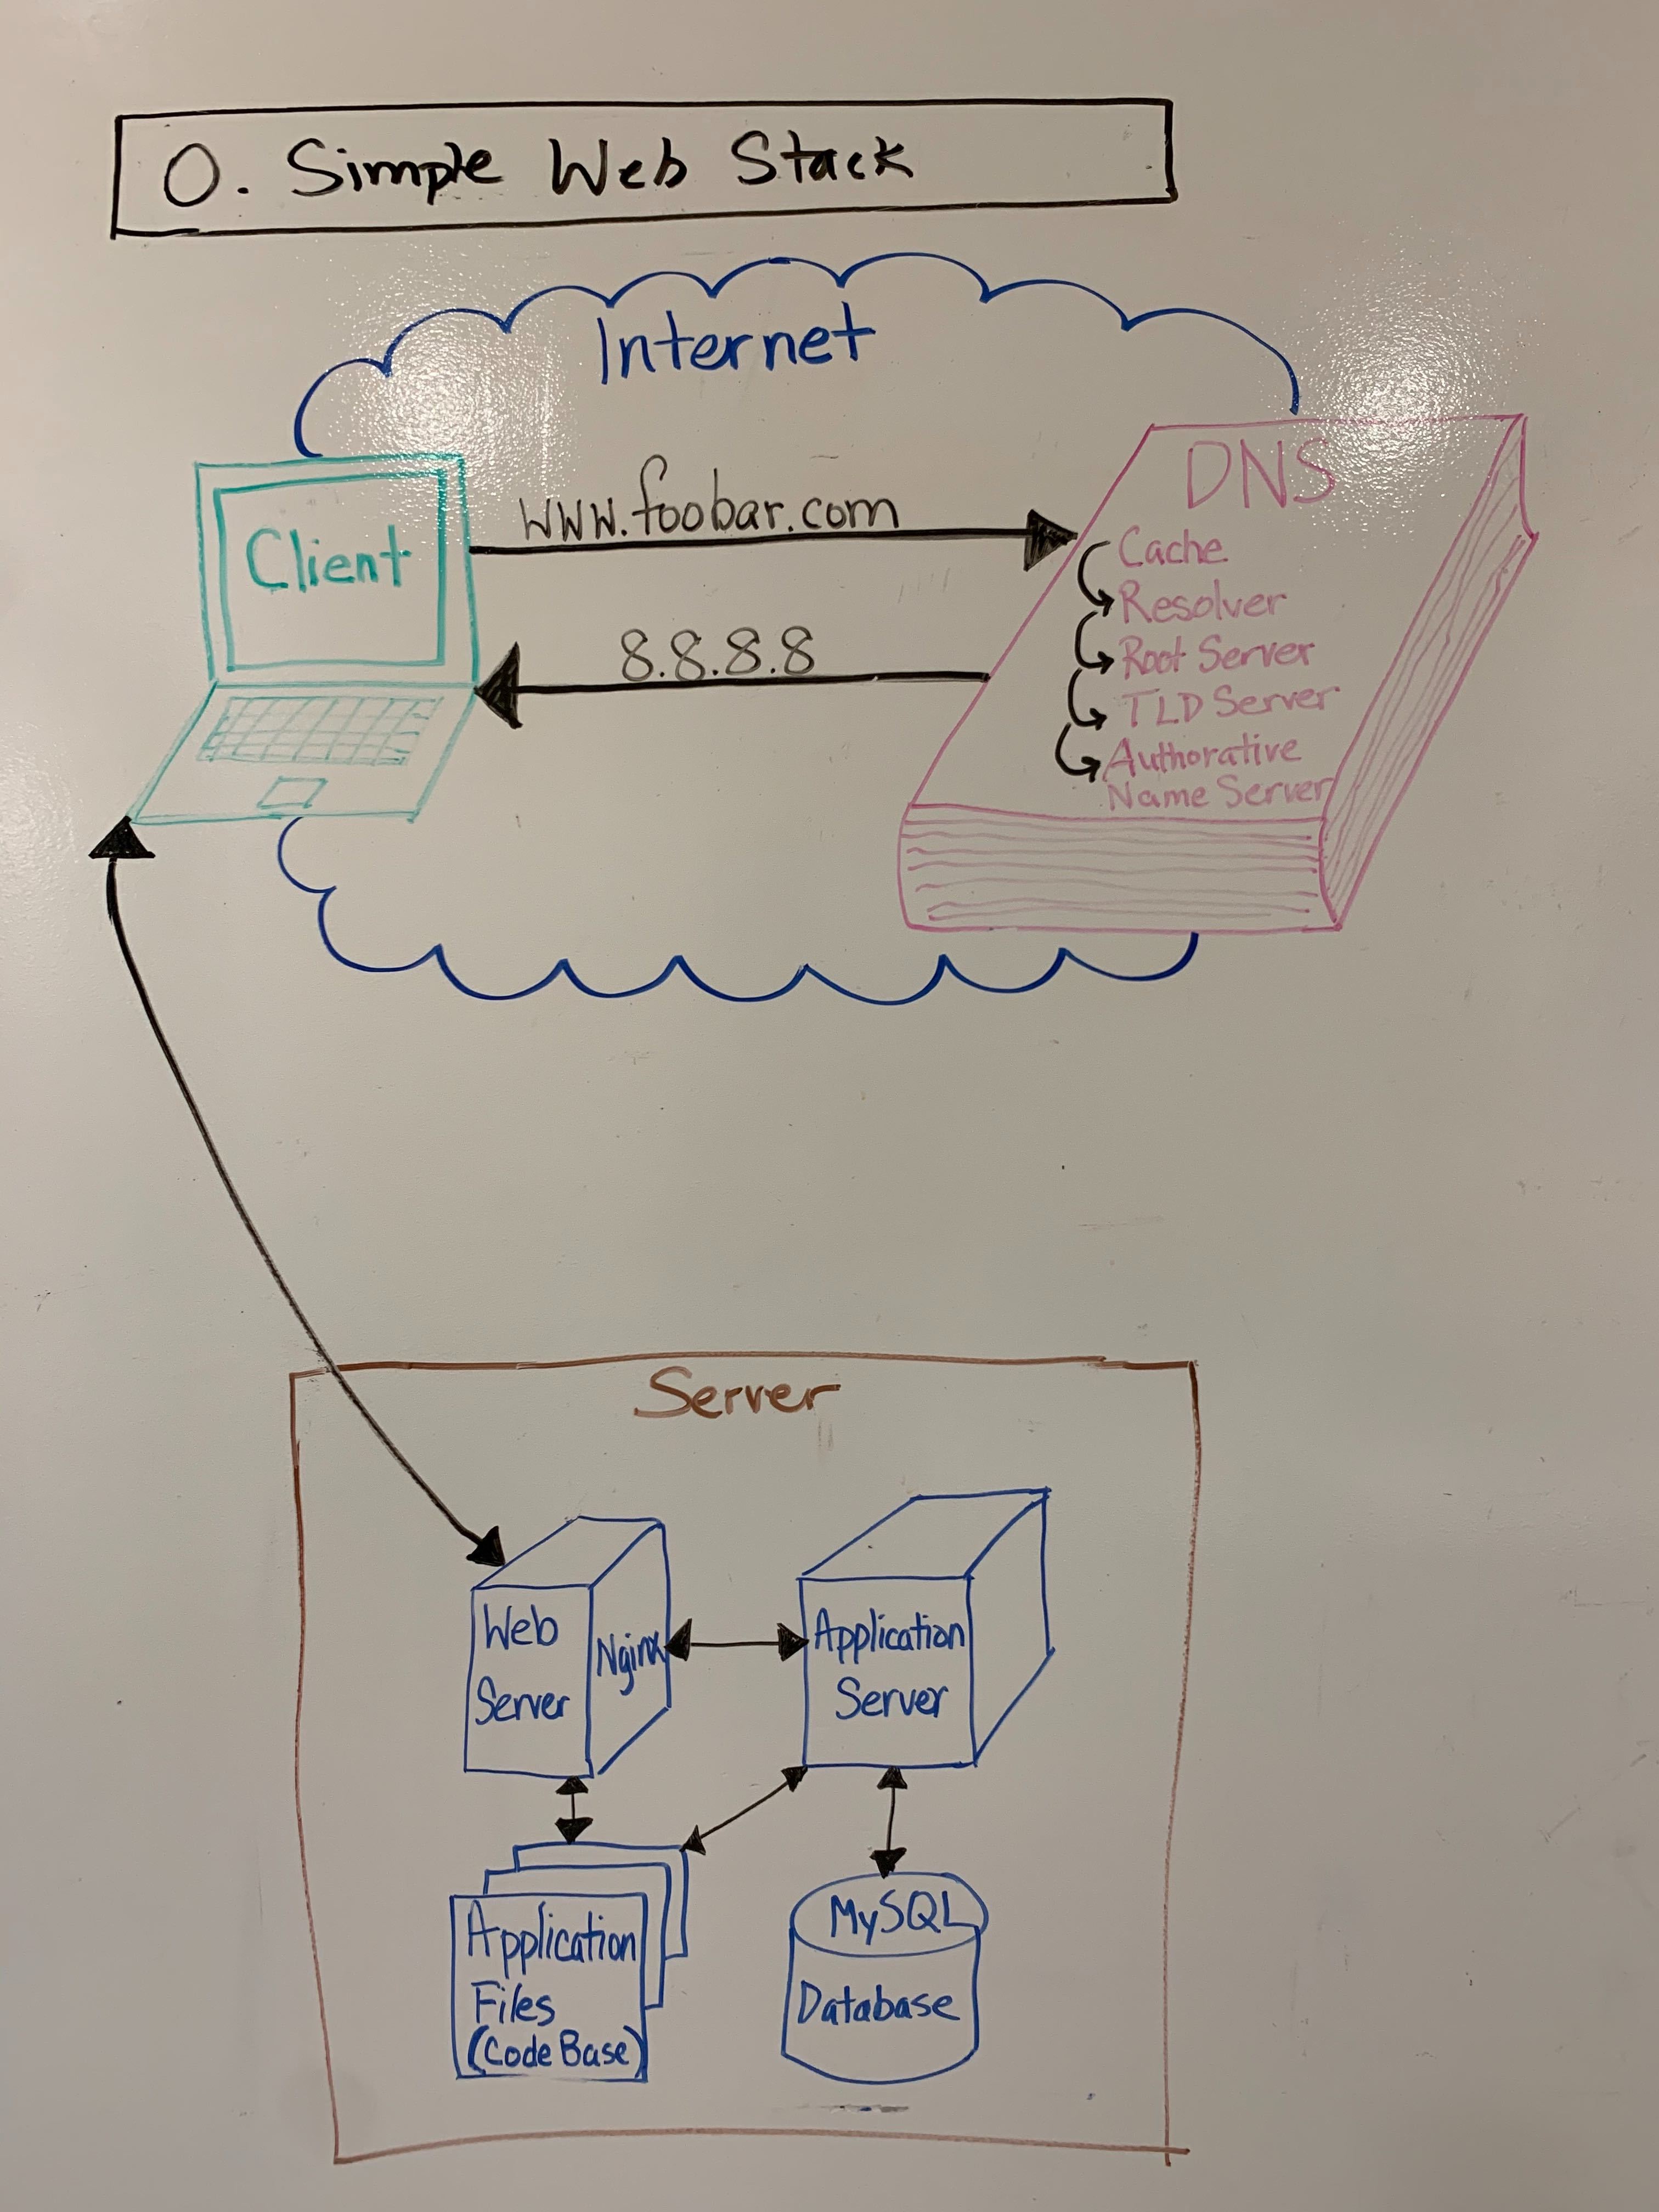 0. Simple Web Stack
Internet
Client
www.foobar.com
8.8.8.8
DNS
Cache
Resolver
Root Server
TLD Server
Authorative
Name Server
Server
Web
Server
Nginx
Application
Server
Application
Files
(Code Base)
MySQL
Database